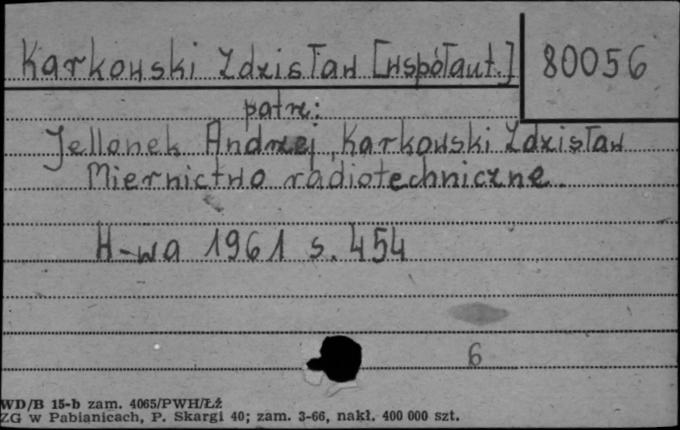 Karkowski Zdzisław [współaut.] 80056
patrz:
Jellonek Andrzej, Karkowski Zdzisław
Miernictwo radiotechniczne
W-wa 1961 s. 454
6
WD/B 15-b zam. 4065/PWH/Łź
ZG w Pabianicach, P. Skargi 40; zam. 3-66, nakł. 400 000 szt.